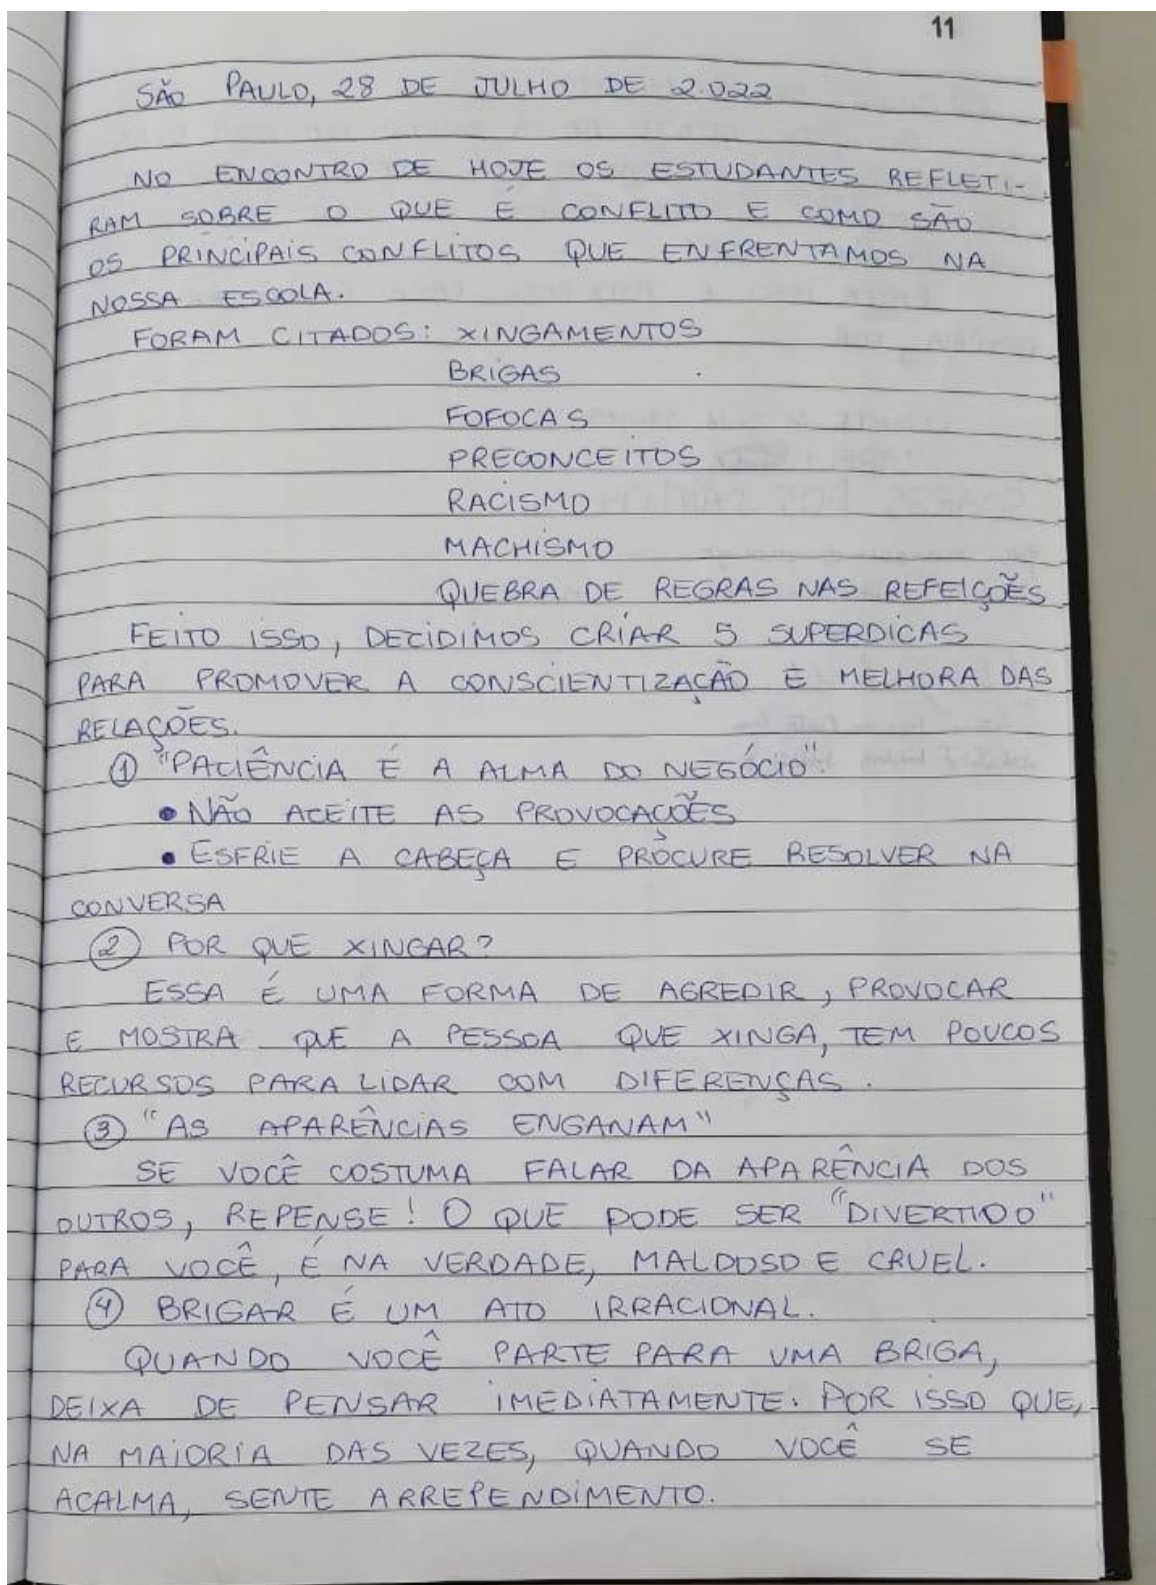 11
SÃO PAULO, 28 DE JULHO DE 2.022
NO ENCONTRO DE HOJE OS ESTUDANTES REFLETI-
RAM SOBRE O QUE É CONFLITO E COMO SÃO
OS PRINCIPAIS CONFLITOS QUE ENFRENTAMOS NA
NOSSA ESCOLA.
FORAM CITADOS: XINGAMENTOS
BRIGAS
FOFOCAS
PRECONCEITOS
RACISMO
MACHISMO
QUEBRA DE REGRAS NAS REFEIÇÕES
FEITO ISSO, DECIDIMOS CRIAR 5 SUPERDICAS
PARA PROMOVER A CONSCIENTIZAÇÃO E MELHORA DAS
RELAÇÕES.
① "PACIÊNCIA É A ALMA DO NEGÓCIO".
• NÃO ACEITE AS PROVOCAÇÕES
• ESFRIE A CABEÇA E PROCURE RESOLVER NA
CONVERSA
② POR QUE XINGAR?
ESSA É UMA FORMA DE AGREDIR, PROVOCAR
E MOSTRA QUE A PESSOA QUE XINGA, TEM POUCOS
RECURSOS PARA LIDAR COM DIFERENÇAS.
③ "AS APARÊNCIAS ENGANAM"
SE VOCÊ COSTUMA FALAR DA APARÊNCIA DOS
OUTROS, REPENSE! O QUE PODE SER "DIVERTIDO"
PARA VOCÊ, É NA VERDADE, MALDOSO E CRUEL.
④ BRIGAR É UM ATO IRRACIONAL.
QUANDO VOCÊ PARTE PARA UMA BRIGA,
DEIXA DE PENSAR IMEDIATAMENTE. POR ISSO QUE,
NA MAIORIA DAS VEZES, QUANDO VOCÊ SE
ACALMA, SENTE ARREPENDIMENTO.